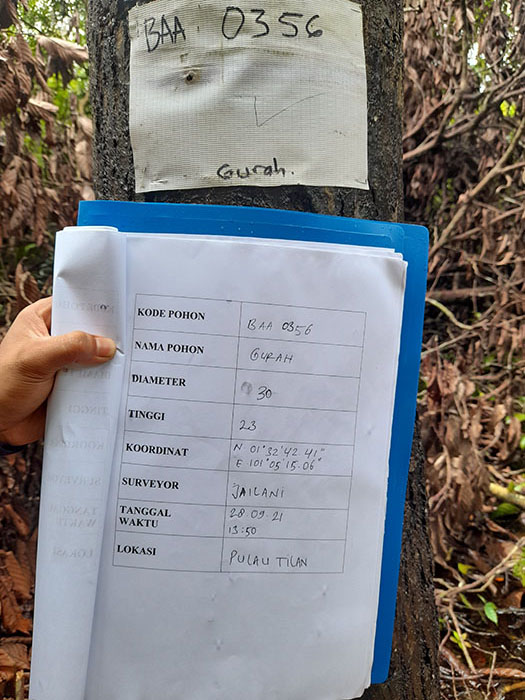 BAA 0356
Gurah.
KODE POHON BAA 0356
NAMA POHON GURAH
DIAMETER 30
TINGGI 23
KOORDINAT N 01°32'42.41"
E 101°05'15.06"
SURVEYOR JAILANI
TANGGAL 28.09.21
WAKTU 13:50
LOKASI PULAU TILAN